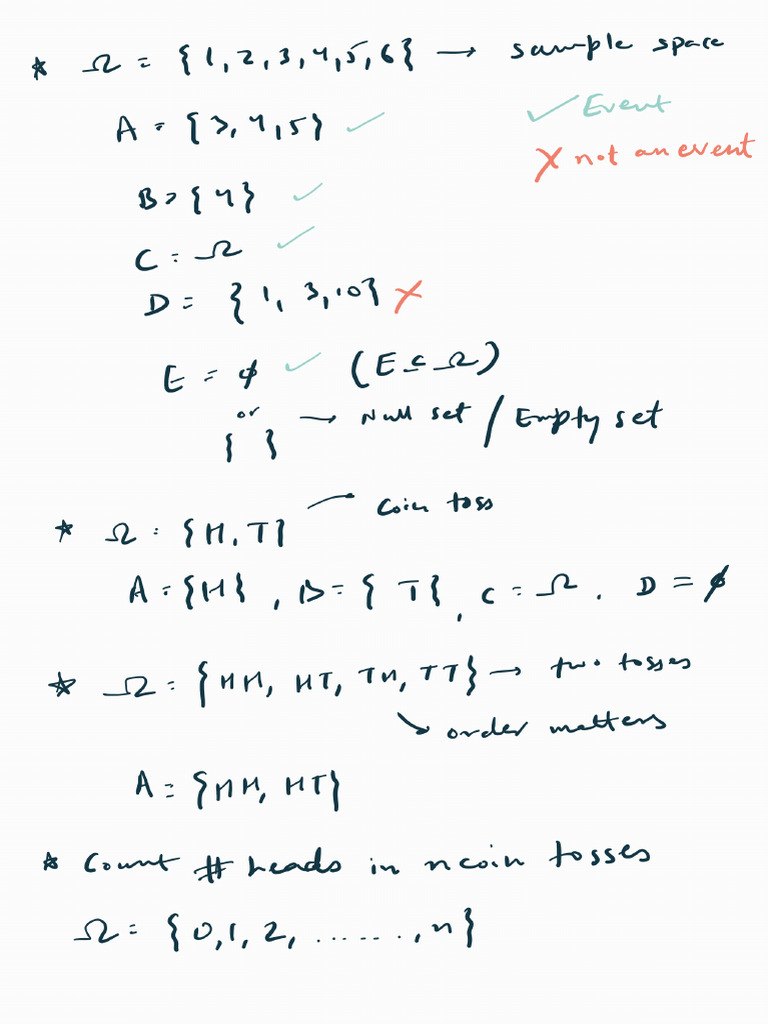 * Ω = {1, 2, 3, 4, 5, 6} → sample space
A = {3, 4, 5} ✓
✓ Event
✗ not an event
B = {4} ✓
C = Ω ✓
D = {1, 3, 10} ✗
E = ϕ ✓ (E ⊆ Ω)
or
{ } → Null set / Empty set
* Ω = {H, T} — coin toss
A = {H}, B = {T}, C = Ω, D = ϕ
* Ω = {HH, HT, TH, TT} → two tosses
↘ order matters
A = {HH, HT}
* Count # heads in n coin tosses
Ω = {0, 1, 2, ......, n}